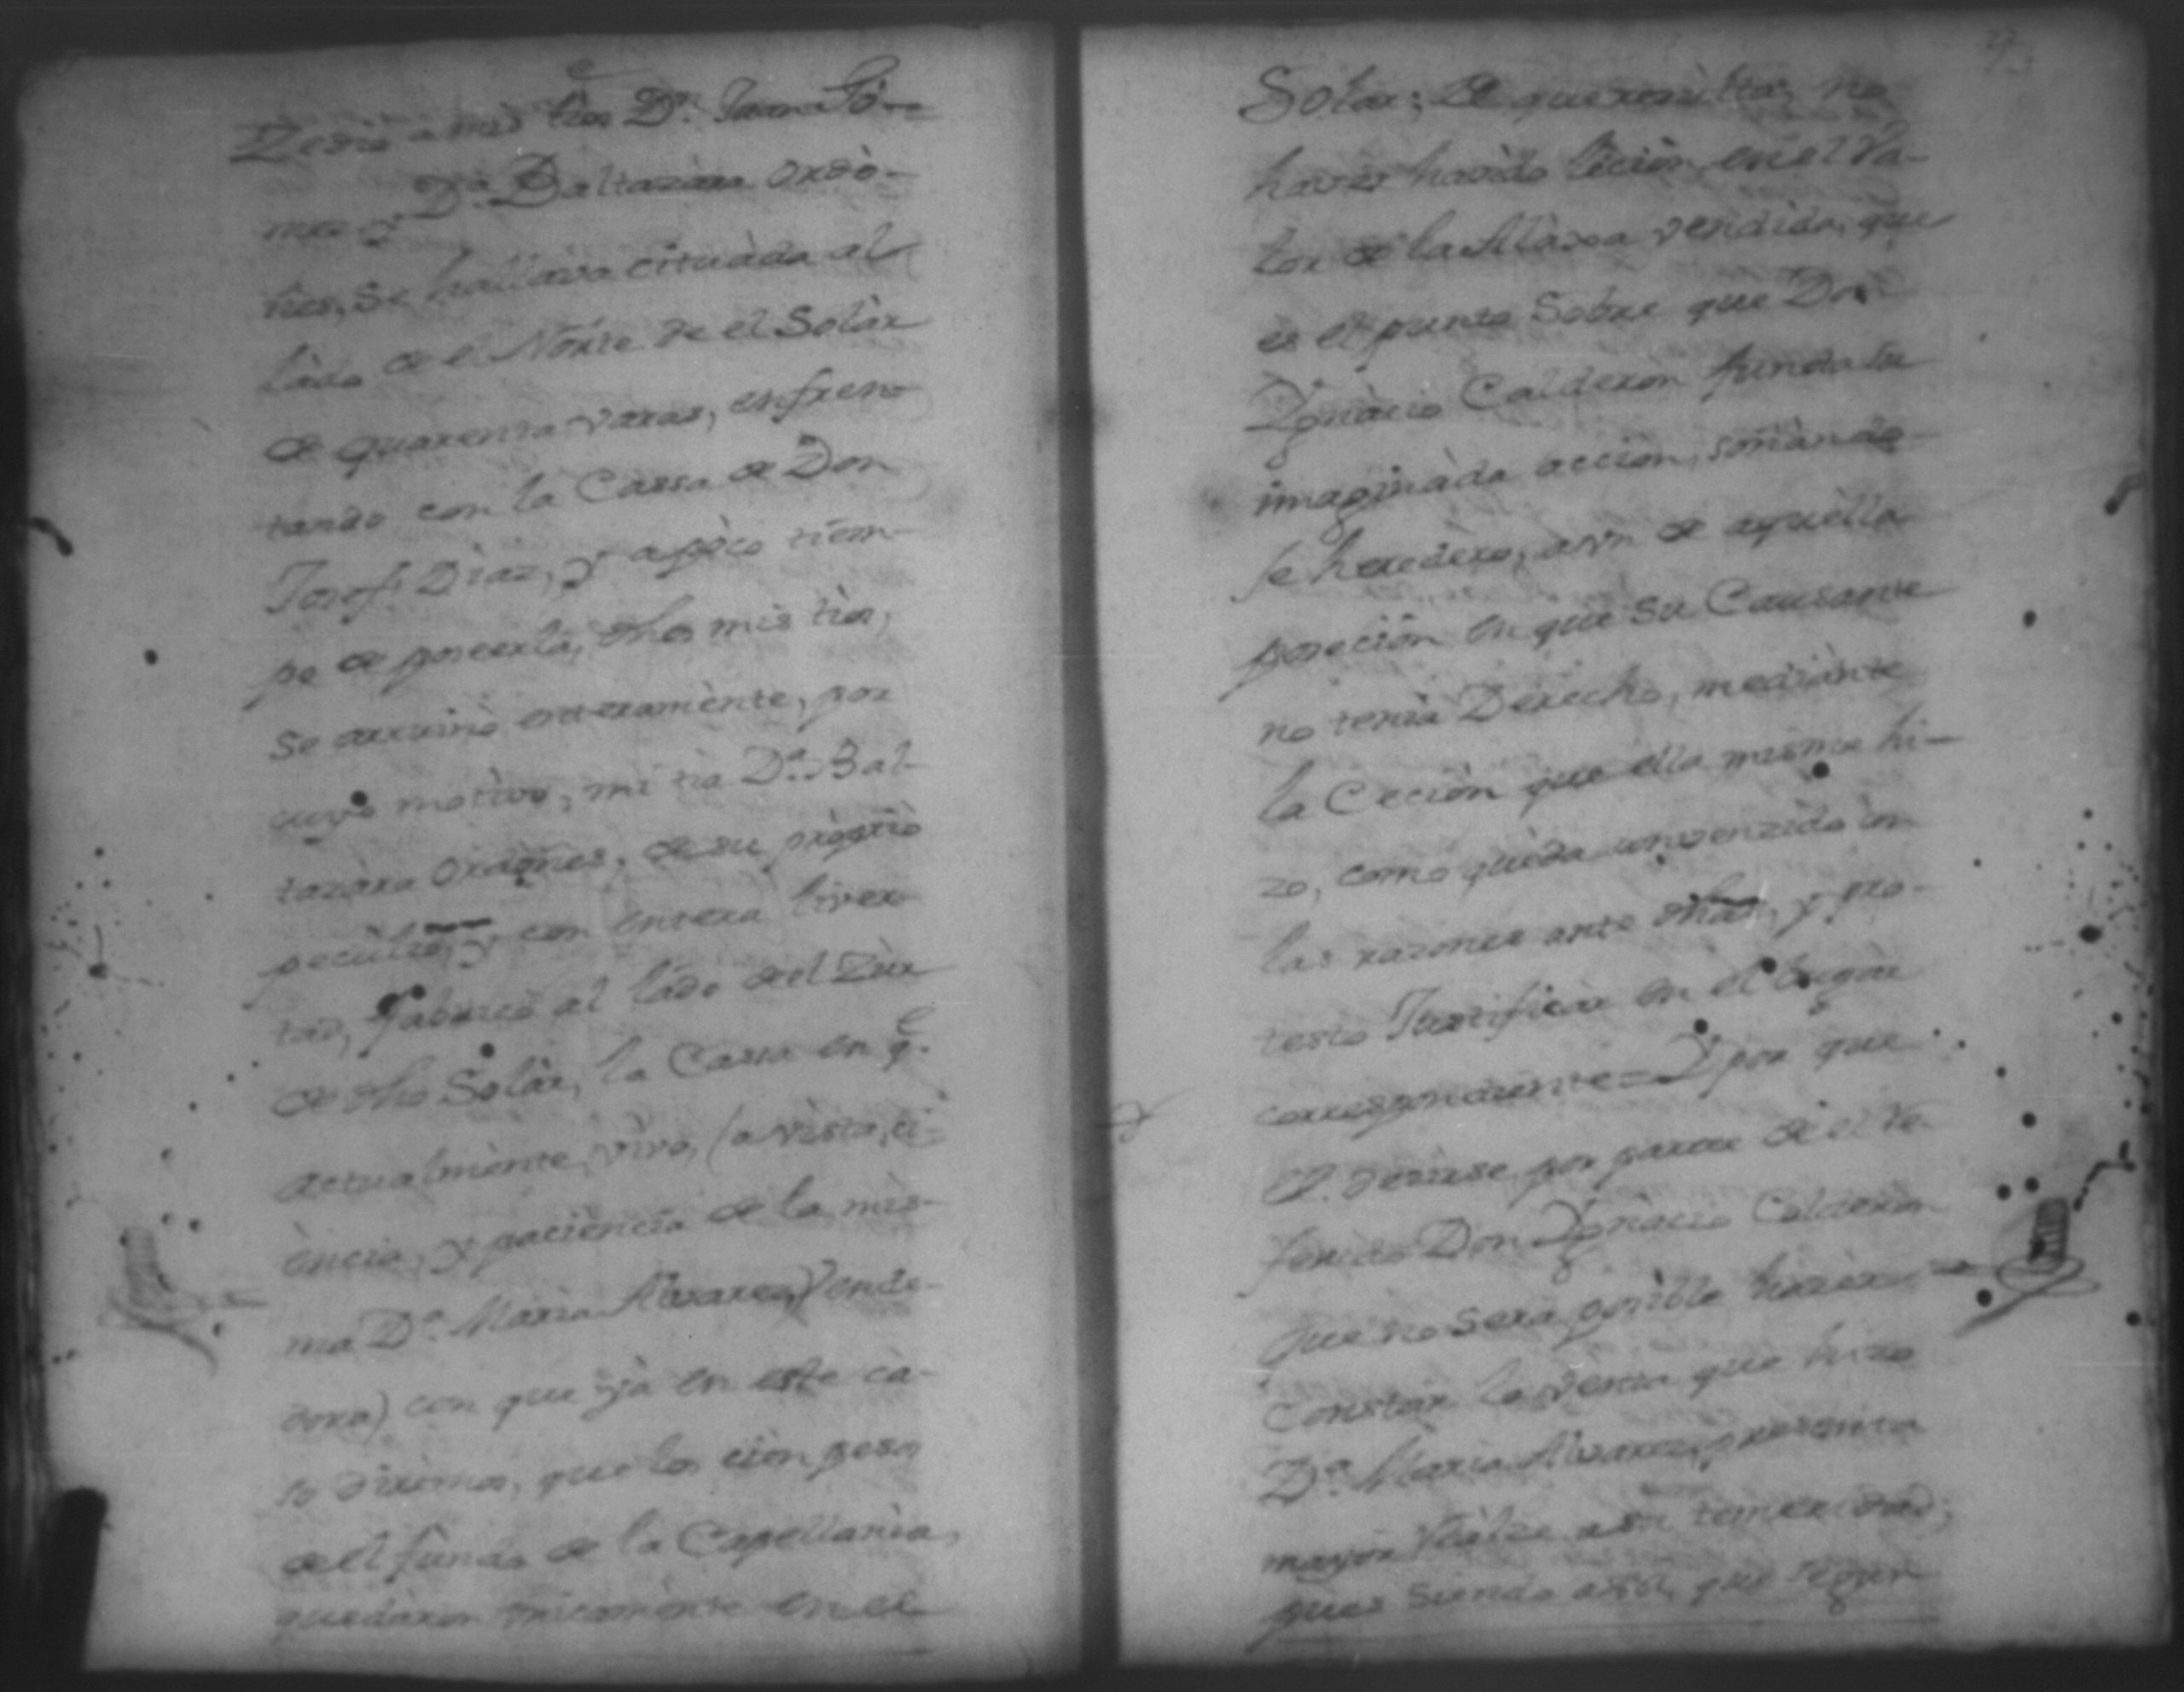 Zedio a mis tios Dn. Juan Gó-
mez y Da. Baltazara Ordo-
ñes, se hallava cituàda al
làdo de el Norte de el Solàr
de quarenta varas, enfren-
tando con la Cassa de Don
Josef Diaz, y a pòco tiem-
po de poseerla, dhos mis tios,
se arruinò enteramènte, por
cuyo motivo, mi tia Da. Bal-
tazàra Ordoñes, de su pròprio
pecùlio, y con entera liver-
tad, Fabricò al làdo del Zùr
de dho Solàr, la Cassa en qe.
actualmènte, vivo, (a vista, ci-
ència, y paciencia de la mis-
ma Da. Maria Alvarez, Vende-
dora) con que yà en este cà-
so diximos, que los cien pesos
de el fundo de la Capellania,
quedàron unicamènte en el
Solàr; De que resulta, no
havèr havido leciòn en el Va-
lor de la Alàxa vendida, que
es el punto Sobre que Don
Ygnàcio Calderon funda su
imaginàda acciòn, soñando-
se heredèro, aun de aquella
poseciòn en que su Causante
no tenia Derecho, mediànte
la Ceciòn que ella misma hi-
zo, como quèda convenzido con
las razones ante dhas, y pro-
testo Justificar en el lugar
correspondiente= Y por que
el decirse por parte de el re-
ferido Don Ygnàcio Calderon
que no sera posible hazèr
constàr la venta que hizo
Da. Maria Alvarez, presenta
mayor reàlze a su temeridad;
pues siendo assi, que segun